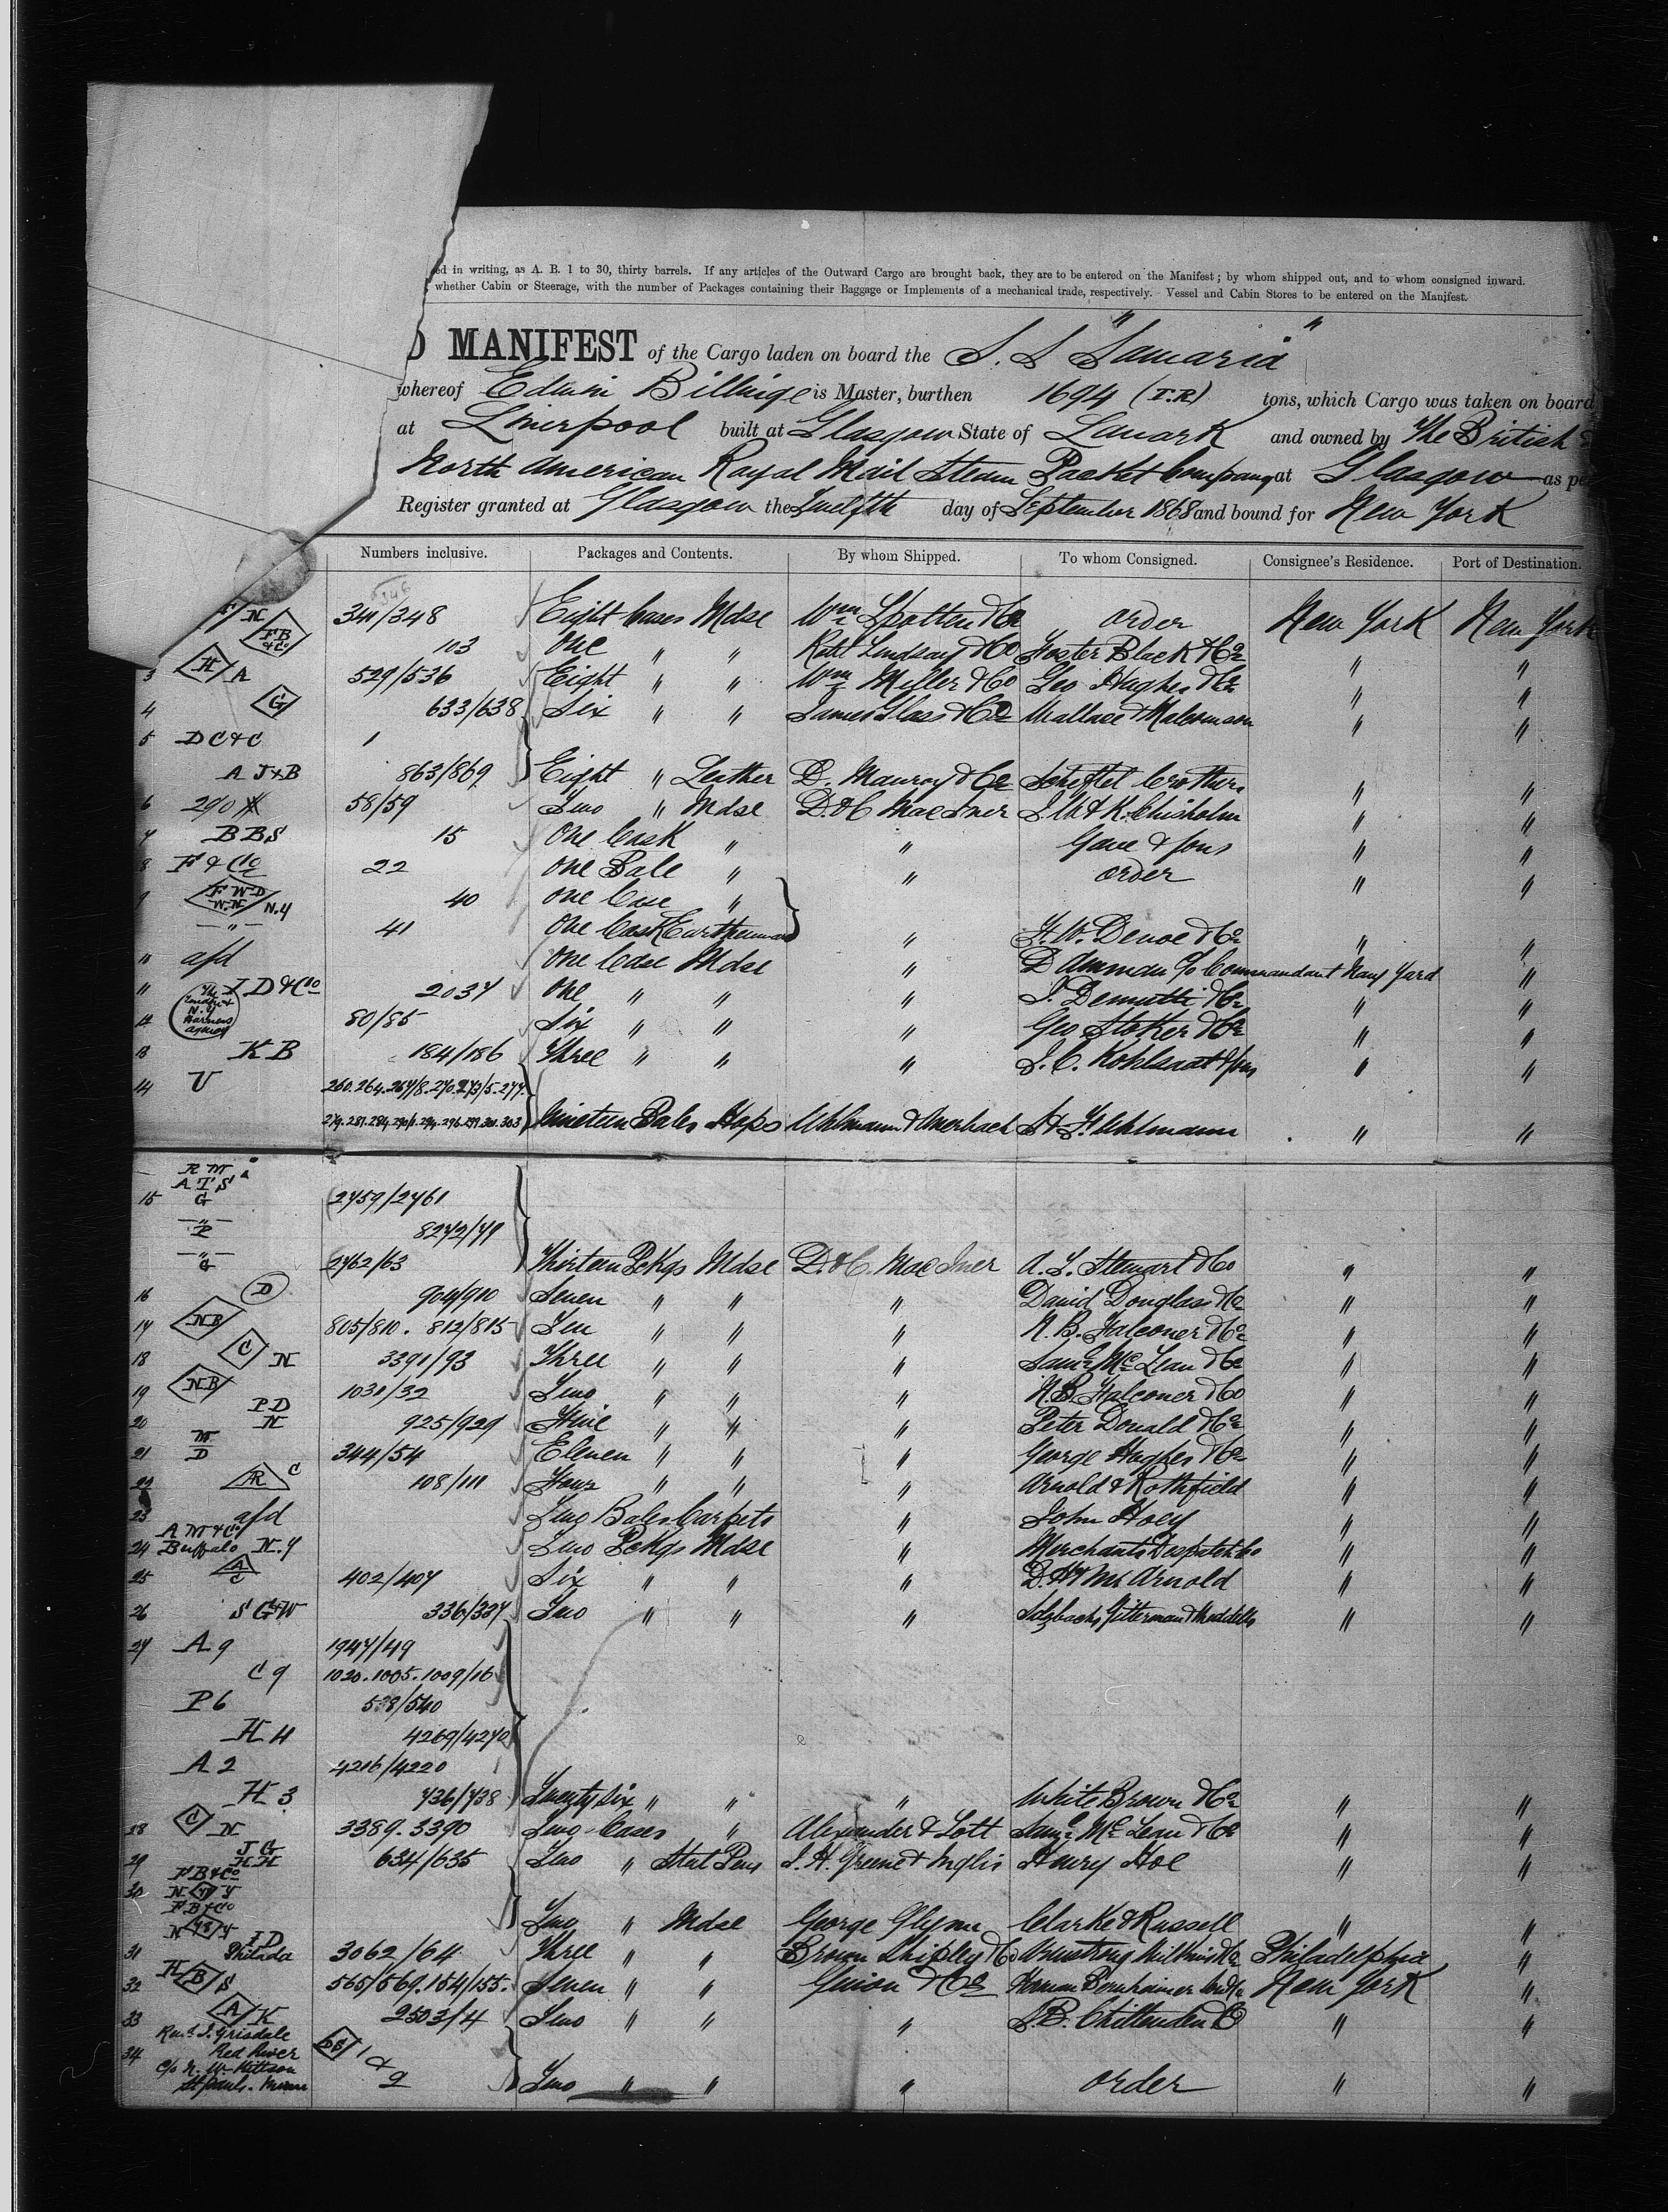 ed in writing, as A. B. 1 to 30, thirty barrels. If any articles of the Outward Cargo are brought back, they are to be entered on the Manifest; by whom shipped out, and to whom consigned inward.
whether Cabin or Steerage, with the number of Packages containing their Baggage or Implements of a mechanical trade, respectively. Vessel and Cabin Stores to be entered on the Manifest.
D MANIFEST of the Cargo laden on board the S. S "Samaria"
whereof Edwin Billinge is Master, burthen 1694 (I.R) tons, which Cargo was taken on board
at Liverpool built at Glasgow State of Lanark and owned by The British &
North American Royal Mail Steam Packet Company at Glasgow as per
Register granted at Glasgow the Twelfth day of September 1868 and bound for New York
Numbers inclusive. Packages and Contents. By whom Shipped. To whom Consigned. Consignee's Residence. Port of Destination.
N 341/348 Eight Cases Mdse Wm Spotten & Co order New York New York
FB & Co 103 One " " Robt Lindsay & Co Foster Black & Co " "
3 H A 529/536 Eight " " Wm Miller & Co Geo Hughes & Co " "
4 G 633/638 Six " " James Glass & Co Wallace & Malcomson " "
5 DC&C 1
A J&B 863/869 Eight " Leather D. & Co Scheftel brothers " "
6 290 58/59 Two " Mdse D. & C. Mac Iver J. W. & K. Chisholm " "
7 BBS 15 One Cask " " Gave & Sons " "
8 F & Co 22 One Bale " " order " "
9 FWD W.N. N.Y 40 One Case "
—"— 41 One Cask Earthenware " F. W. Devoe & Co " "
11 afd One Case Mdse " D Amman c/o Commandant Navy Yard "
11 I D & Co 2037 One " " " I. Demuth & Co " "
12 80/85 Six " " " Geo Stother & Co " "
13 KB 184/186 Three " " " J. C. Kohlsaat & Sons " "
14 U 260.264.267/8.270.273/5.277.
279.281.284.290/1.294.296.299.301.303 Nineteen Bales Hops Uhlmann & Auerbach S. F. Uhlmann " "
R M
A T S
15 G 2759/2761
—"— P 8272/79
—"— G 2762/63 Thirteen Pckgs Mdse D. & C. Mac Iver A. T. Stewart & Co " "
16 D 904/910 Seven " " " David Douglass & Co " "
17 NB 805/810. 812/815 Ten " " " N. B. Falconer & Co " "
18 C N 3391/93 Three " " " Saml McLean & Co " "
19 NB 1031/32 Two " " " N. B. Falconer & Co " "
20 PD N 925/929 Five " " " Peter Donald & Co " "
21 M D 344/54 Eleven " " " George Hughes & Co " "
22 R C 108/111 Four " " " Arnold & Rothfield " "
23 afd Two Bales Carpets " John Hoey " "
A M & Co
24 Buffalo N.Y Two Pckgs Mdse " Merchants Despatch Co " "
25 A C 402/407 Six " " " D. H. Arnold " "
26 S G&W 336/337 Two " " " Salzbach, Gitterman & " "
27 A 9 1947/49
C 9 1020.1005.1009/16
P 6 538/540
H 4 4269/4270
A 2 4216/4220
H 3 736/738 Twenty six " " " White Brown & Co " "
28 C N 3389.3390 Two Cases " Alexander & Lott Saml McLean & Co " "
29 J G H H 634/635 Two " Steel Pens J. H. Greene & Inglis Henry Hoe " "
F B & Co
30 N 47 Y
F B & Co
N 48 Y Two " Mdse George Glynn Clarke & Russell " "
31 I D Philada 3062/64 Three " " Brown Shipley & Co Armstrong Wilkins & Co Philadelphia "
32 H B S 565/569.154/155. Seven " " Guion & Co Herman Bernheimer New York "
33 A K 2503/4 Two " " " S. B. Chittenden & Co " "
Revd J. Grisdale
Red River
34 c/o N. W. Kittson
St Pauls. Minn DB 1 & 2 Two " " " order " "